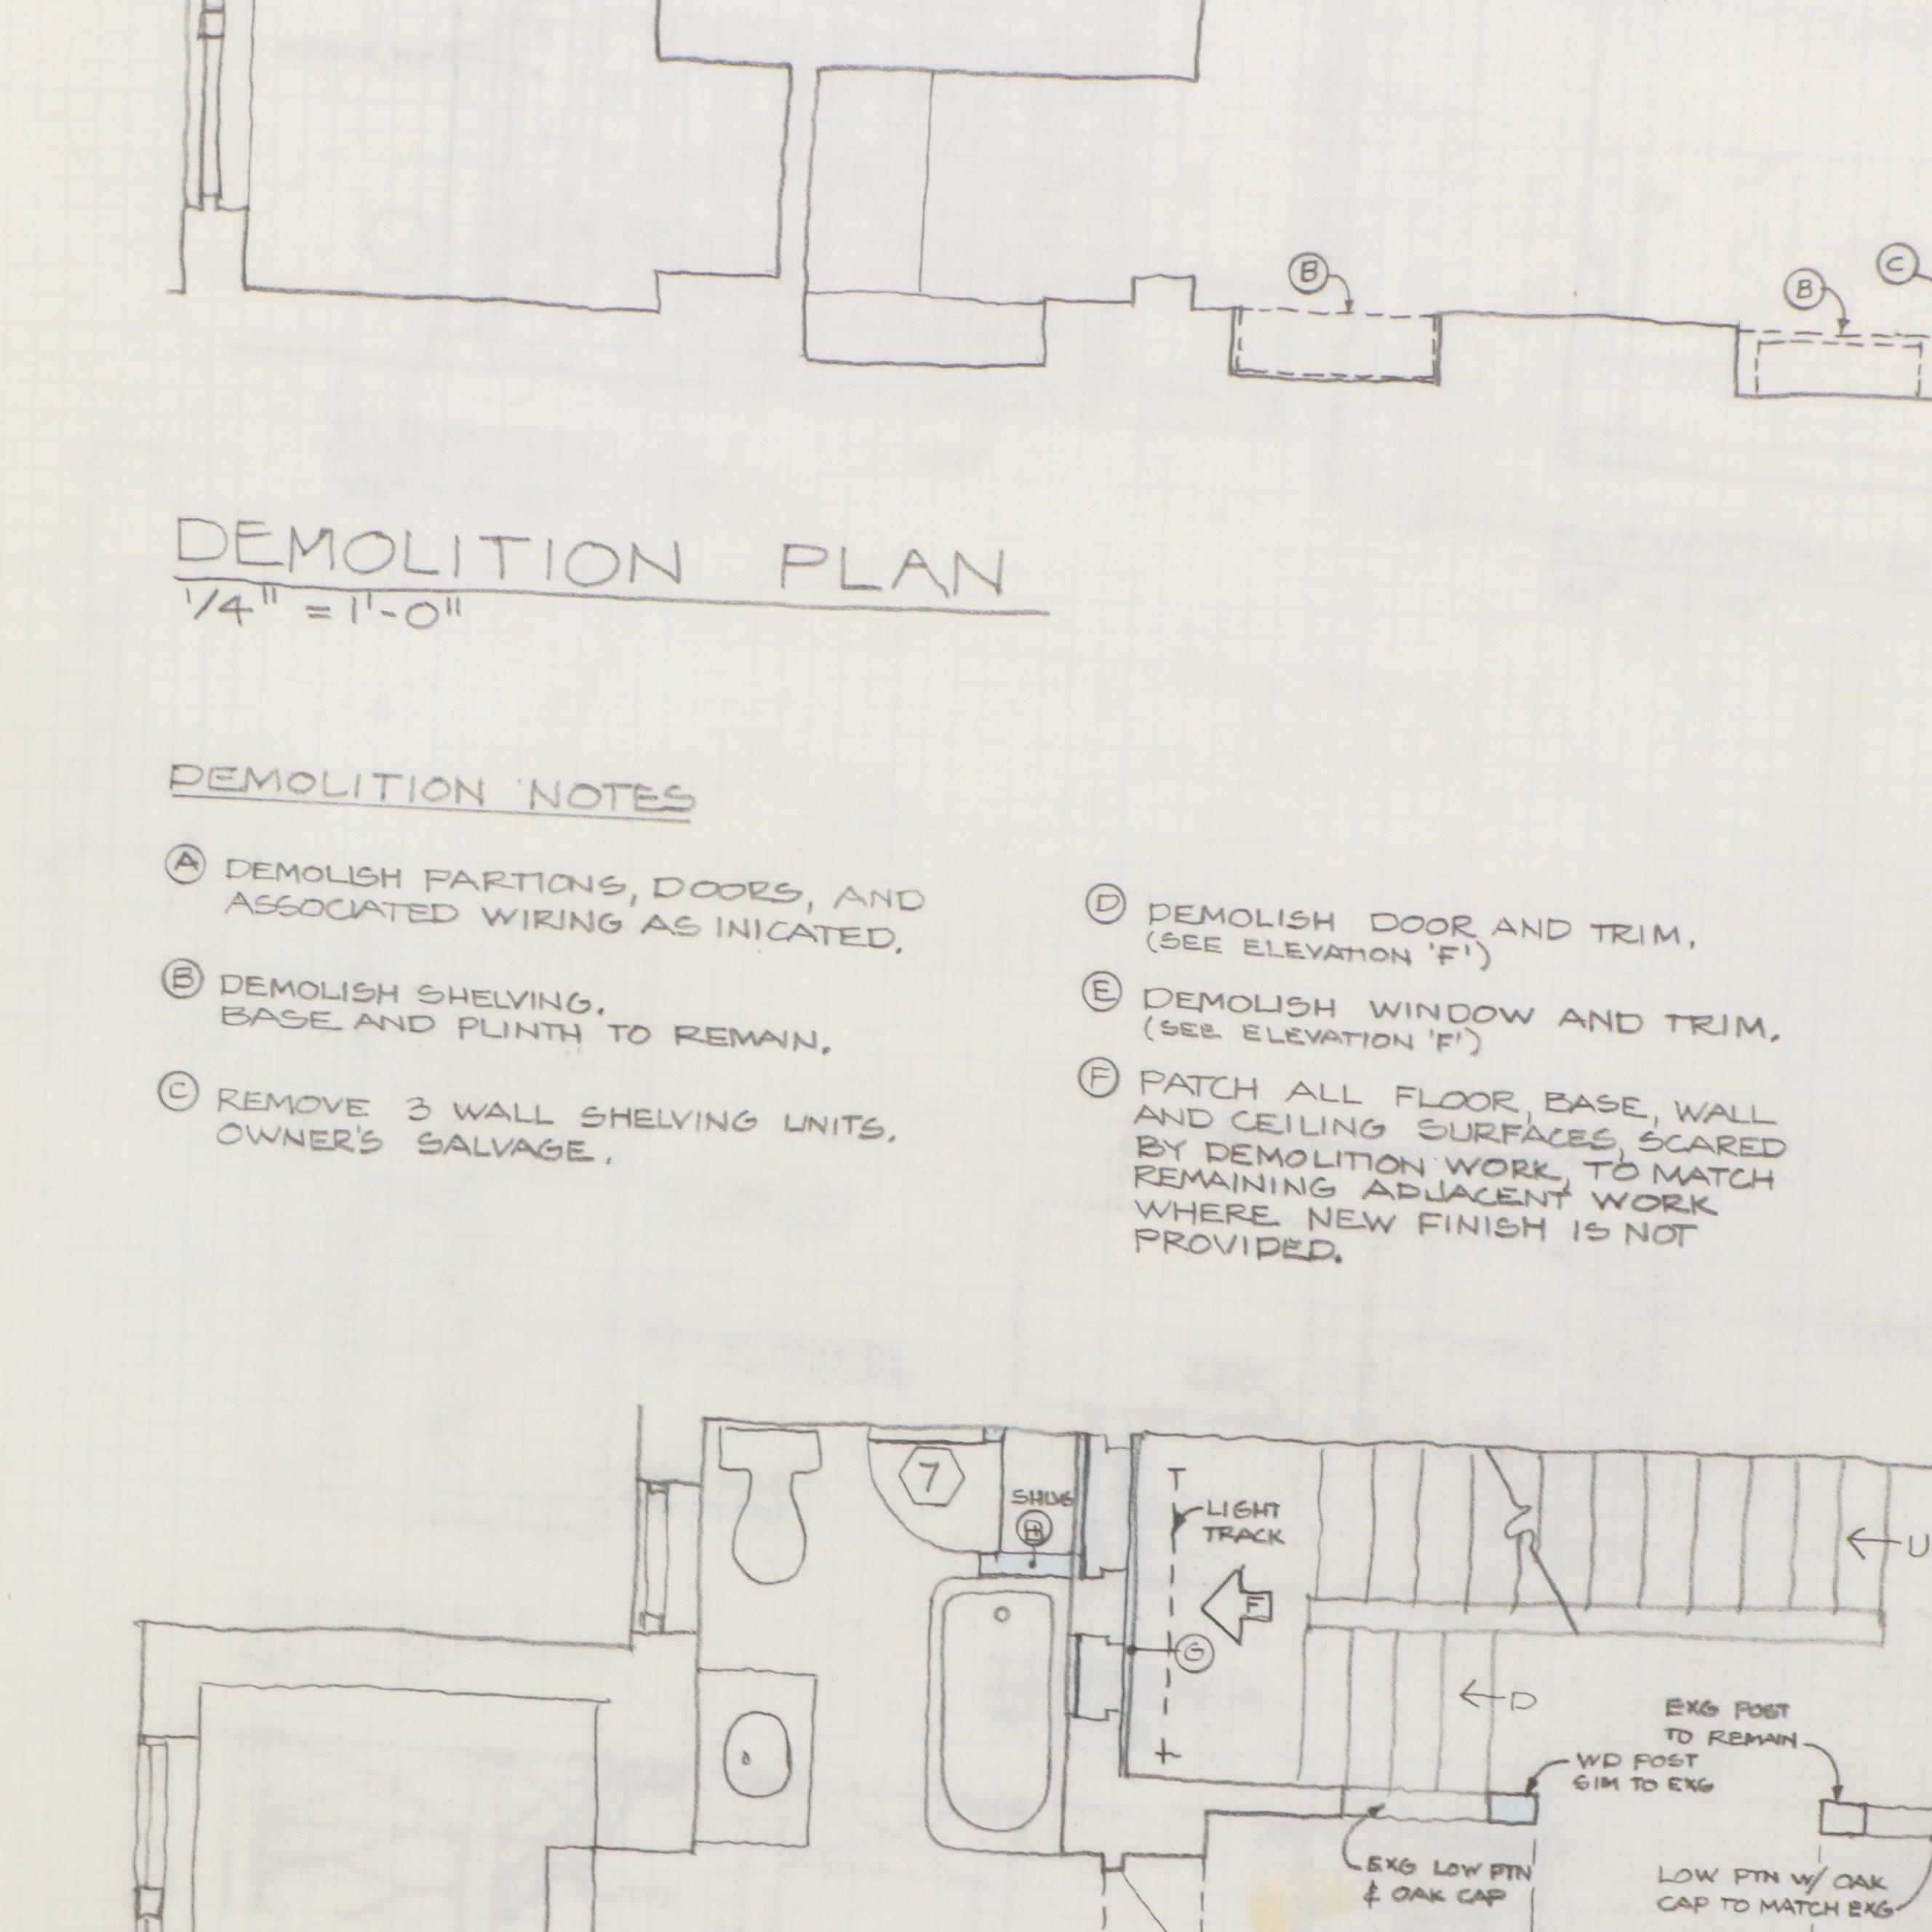 B
B
C
DEMOLITION PLAN
1/4" = 1'-0"
DEMOLITION NOTES
A DEMOLISH PARTIONS, DOORS, AND
ASSOCIATED WIRING AS INICATED.
B DEMOLISH SHELVING.
BASE AND PLINTH TO REMAIN.
C REMOVE 3 WALL SHELVING UNITS.
OWNER'S SALVAGE.
D DEMOLISH DOOR AND TRIM.
(SEE ELEVATION 'F')
E DEMOLISH WINDOW AND TRIM.
(SEE ELEVATION 'F')
F PATCH ALL FLOOR, BASE, WALL
AND CEILING SURFACES, SCARED
BY DEMOLITION WORK, TO MATCH
REMAINING ADJACENT WORK
WHERE NEW FINISH IS NOT
PROVIDED.
7
SHLVG
LIGHT
TRACK
F
G
U
D
EXG POST
TO REMAIN
WD POST
SIM TO EXG
EXG LOW PTN
& OAK CAP
LOW PTN W/ OAK
CAP TO MATCH EXG